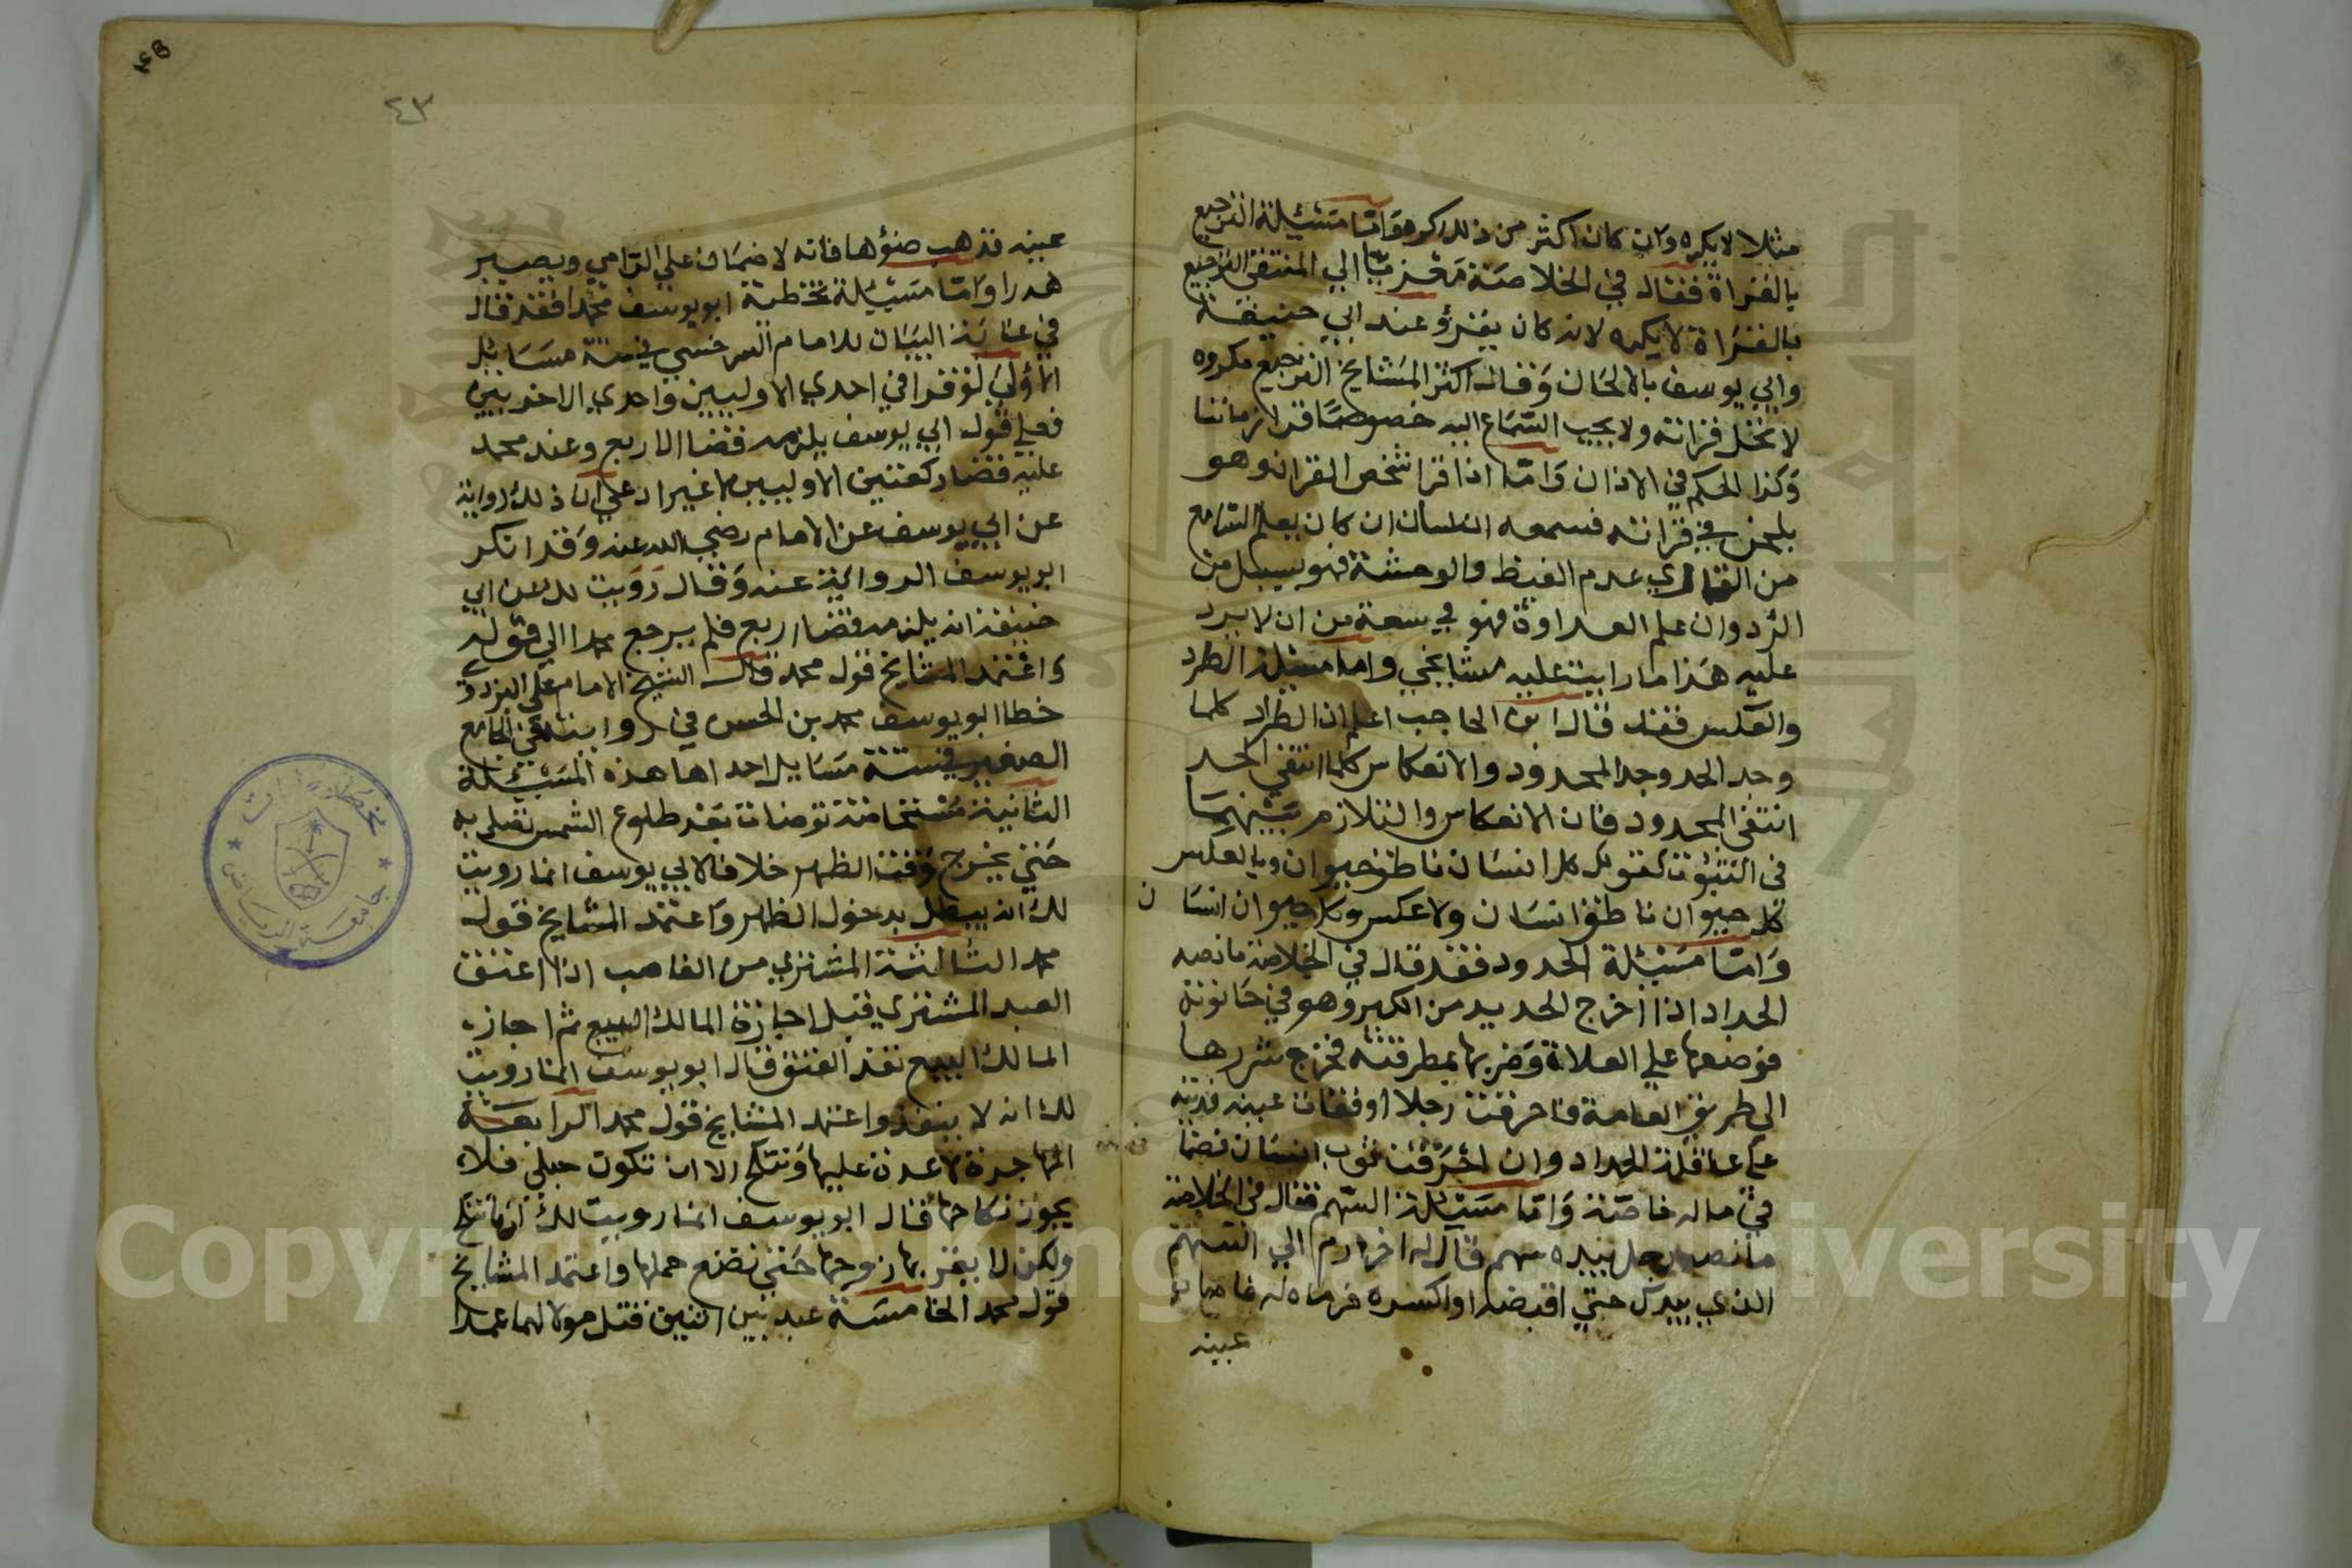 مثلا لا يكره وان كان اكثر من ذلك كره واما مسئلة الترجيع
بالقراة فقال في الخلاصة معزيا الي المنتقى الترجيع
بالقراة لا يكره لانه كان يقرؤ عند ابي حنيفة
وابي يوسف بالالحان وقال اكثر المشايخ الترجيع مكروه
لا تحل قراته ولا يجب السماع اليه خصوصا قرا زماننا
وكذا الحكم في الاذان واما اذا قرا شخص القران وهو
يلحن في قراته فسمعه انسان ان كان يعلم السامع
من القاري عدم الغيظ والوحشة فهو بسبيل من
الرد وان علم العداوة فهو في سعة من ان لا يرد
عليه هذا ما رايت عليه مشايخي واما مسئلة الطرد
والعكس فقد قال ابن الحاجب اعلم ان الطراد كلما
وجد الحد وجد المحدود والانعكاس كلما انتفي الحد
انتفى المحدود فان الانعكاس والتلازم بينهما
في الثبوت كقولك كل انسان ناطق حيوان وبالعكس
كل حيوان ناطق انسان ولا عكس وكل حيوان انسان
واما مسئلة الحدود فقد قال في الخلاصة ما نصه
الحداد اذا اخرج الحديد من الكير وهو في حانوته
فوضعها علي العلاة وضربها بمطرقته فخرج شررها
الى طريق العامة فاحرقت رجلا او فقات عينه فديته
على عاقلة الحداد وان احرقت ثوب انسان فضما
في ماله خاصة واما مسئلة السهم فقال في الخلاصة
ما نصه رجل بيده سهم قال له اخر ارم الي السهم
الذي بيدك حتي اقبضه او اكسره فرماه له فاصاب
عينه
٤٣
عينه فذهب ضؤها فانه لا ضمان علي الرامي ويصير
هدرا واما مسئلة تخطئة ابو يوسف محمدا فقد قال
في غاية البيان للامام السرخسي في ستة مسايل
الاولى لو قرا في احدي الاوليين واحدي الاخريين
فعلي قول ابي يوسف يلزمه قضا الاربع وعند محمد
عليه قضا ركعتين الاوليين لا غير ادعي ان ذلك رواية
عن ابي يوسف عن الامام رضي الله عنه وقد انكر
ابو يوسف الرواية عنه وقال رويت لك عن ابي
حنيفة انه يلزمه قضا اربع فلم يرجع محمد الي قوله
واعتمد المشايخ قول محمد قال الشيخ الامام علي البزدوي
خطا ابو يوسف محمد بن الحسن في روايته في الجامع
الصغير في ستة مسايل احداها هذه المسئلة
الثانية مستحاضة توضات بعد طلوع الشمس تصلي به
حتي يخرج وقت الظهر خلافا لابي يوسف انما رويت
لك انه يبطل بدخول الظهر واعتمد المشايخ قول
محمد الثالثة المشتري من الغاصب اذا اعتق
العبد المشتري قبل اجازة المالك البيع ثم اجاز
المالك البيع نفذ العتق قال ابو يوسف انما رويت
لك انه لا ينفذ واعتمد المشايخ قول محمد الرابعة
المهاجرة لا عدة عليها وتنكح الا ان تكون حبلي فلا
يجوز نكاحها قال ابو يوسف انما رويت لك انها تنكح
ولكن لا يقربها زوجها حتي تضع حملها واعتمد المشايخ
قول محمد الخامسة عبد بين اثنين قتل مولا لهما عمدا
Copyright © King Saud University